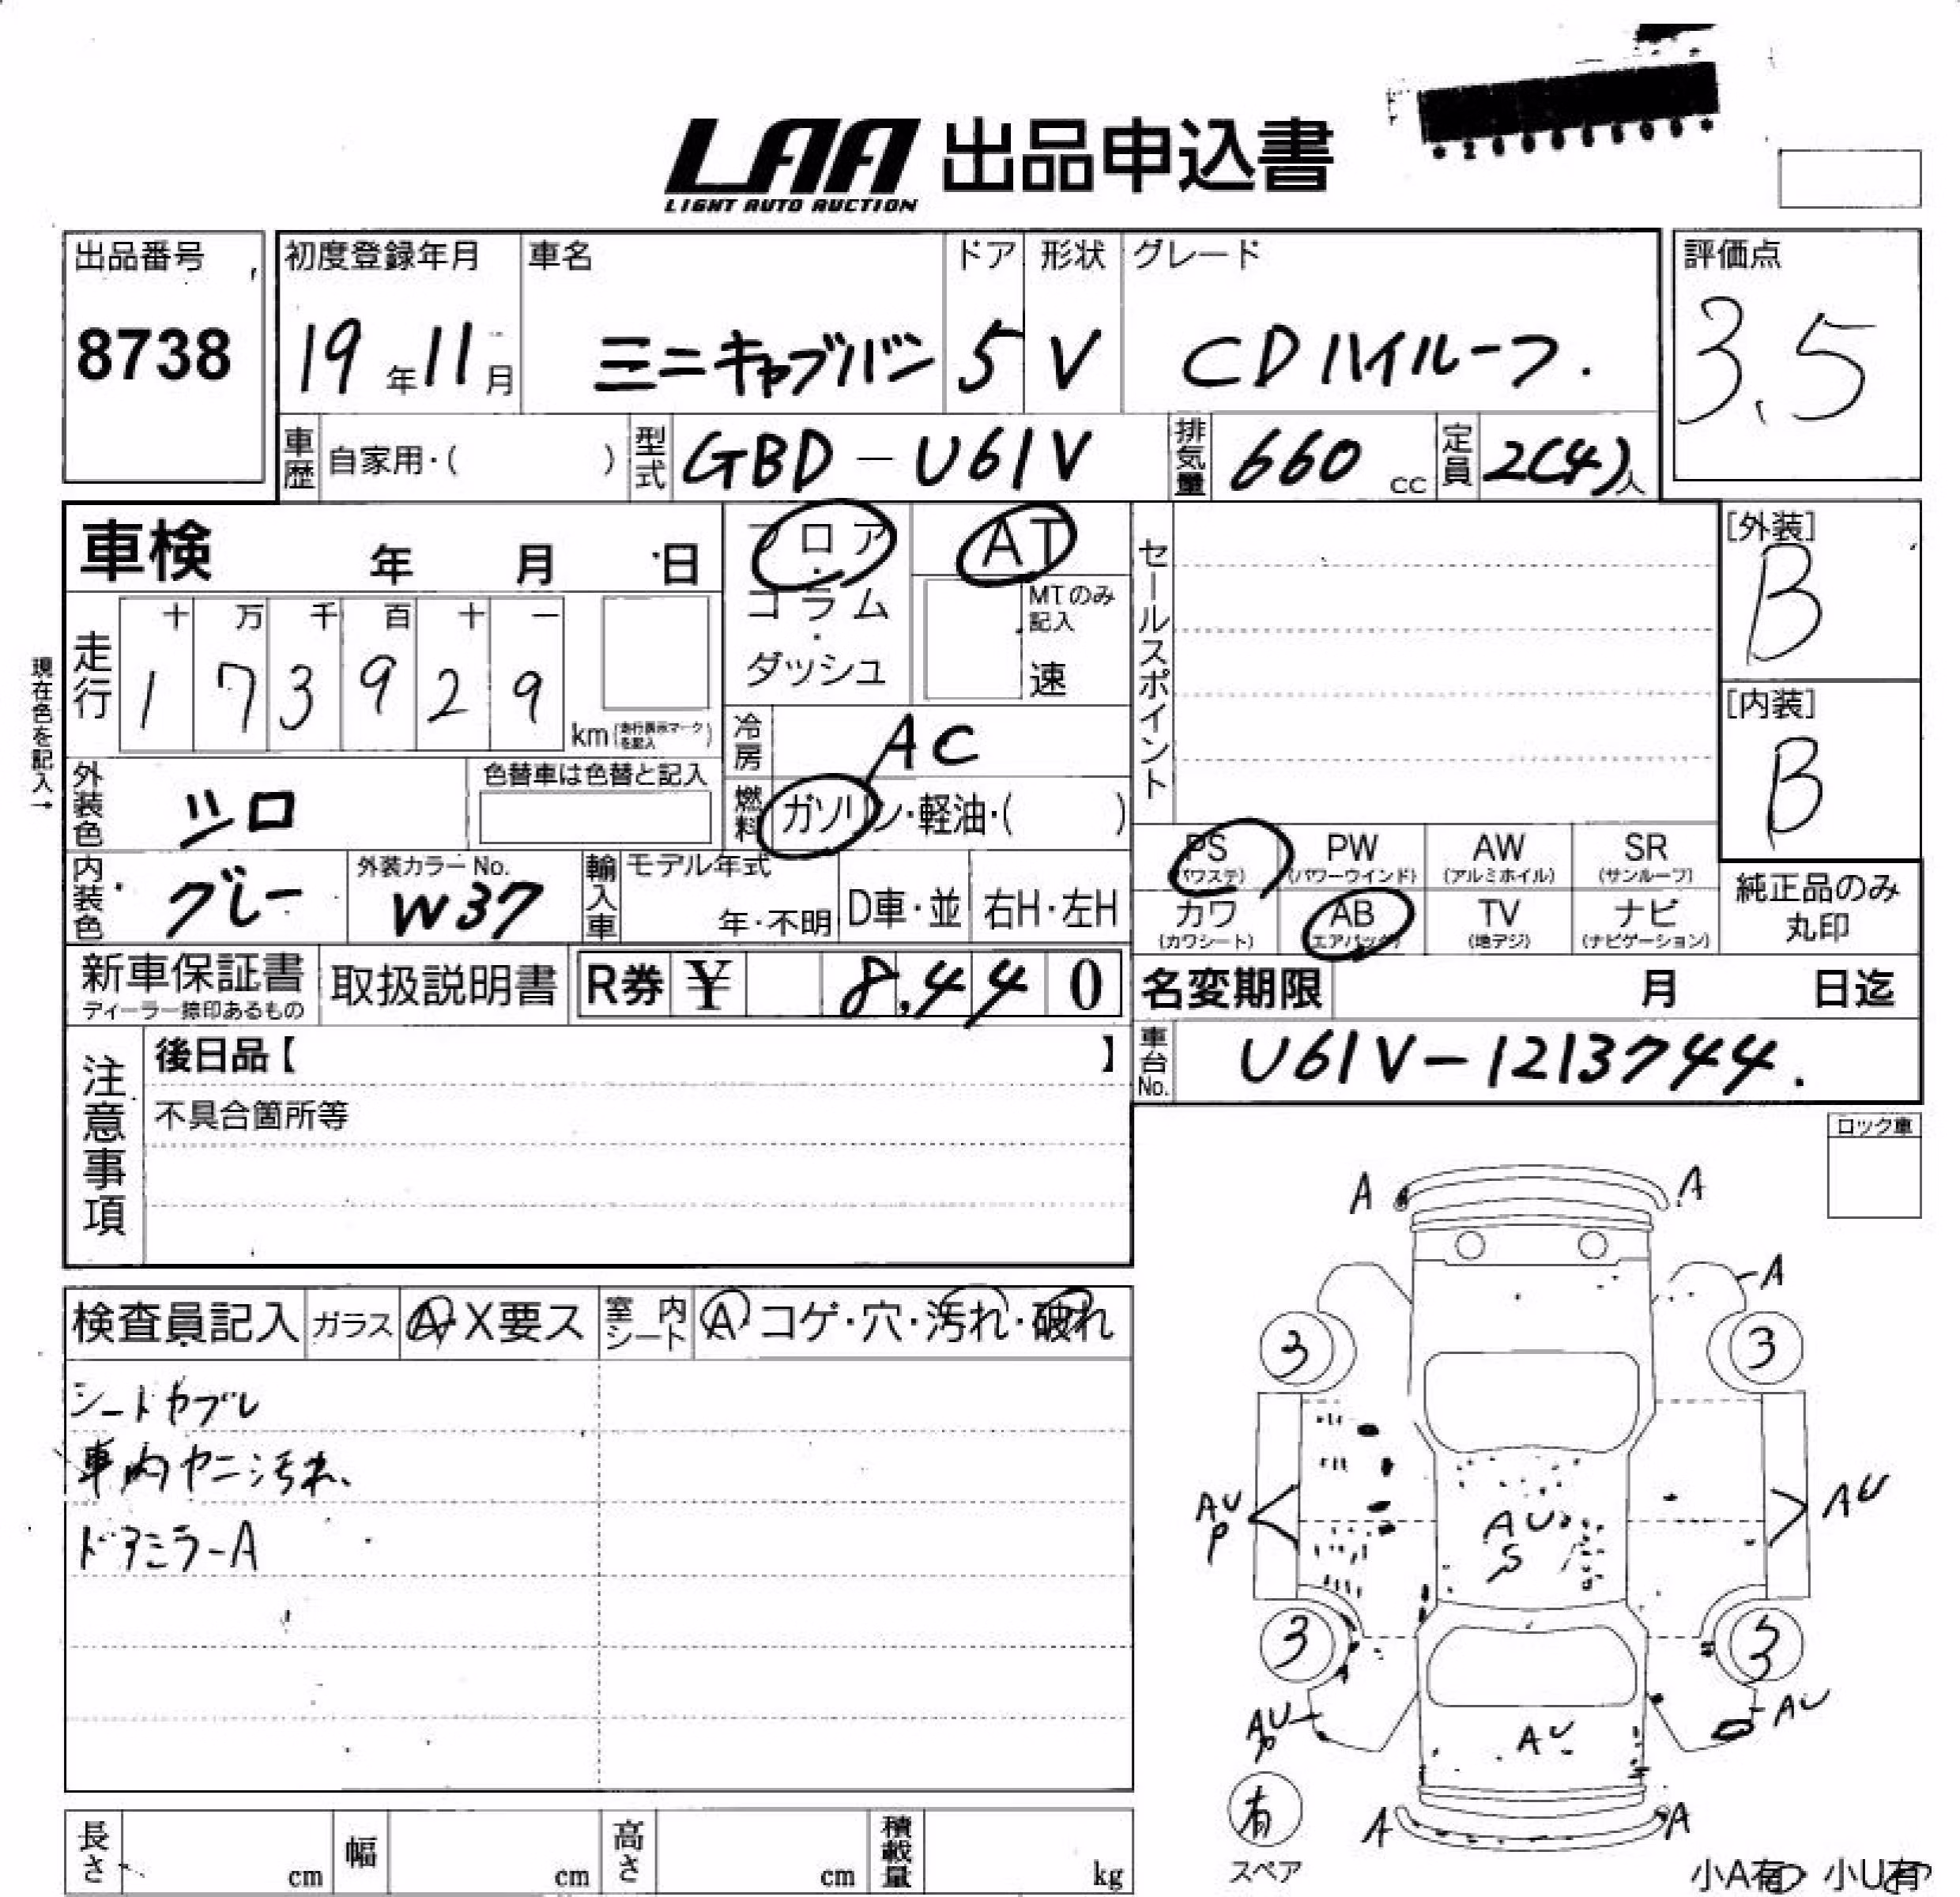 LAA 出品申込書
LIGHT AUTO AUCTION
出品番号 初度登録年月 車名 ドア 形状 グレード 評価点
8738 19年11月 ミニキャブバン 5 V CDハイルーフ. 3.5
車歴 自家用・( ) 型式 GBD-U61V 排気量 660 cc 定員 2(4)人
車検 年 月 日 フロア・コラム・ダッシュ AT
MTのみ記入 速
セールスポイント
[外装] B
[内装] B
現在色を記入→
走行 十 万 千 百 十 一
1 7 3 9 2 9 km (走行表示マークを記入)
冷房 AC
外装色 シロ 色替車は色替と記入
燃料 ガソリン・軽油・( )
内装色 グレー 外装カラーNo. W37 輸入車 モデル年式 年・不明 D車・並 右H・左H
PS (パワステ) PW (パワーウインド) AW (アルミホイル) SR (サンルーフ)
カワ (カワシート) AB (エアバッグ) TV (地デジ) ナビ (ナビゲーション)
純正品のみ
丸印
新車保証書 ディーラー捺印あるもの 取扱説明書 R券 ¥ 8,440
名変期限 月 日迄
車台No. U61V-1213744.
注意事項
後日品【 】
不具合箇所等
ロック車
検査員記入 ガラス A X要ス 室内シート A コゲ・穴・汚れ・破れ
シートヤブレ
車内ヤニ汚れ、
ドアミラーA
A A
A
3 3
AU P AU S AU
3 3
AU P AU AU
有
スペア
A A
小A有 小U有
長さ cm 幅 cm 高さ cm 積載量 kg